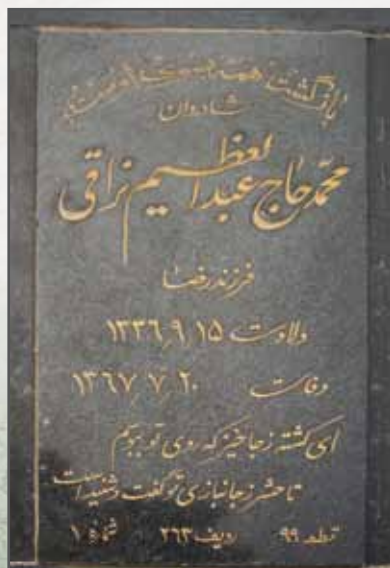 بازگشت همه بسوی اوست
شادروان
محمد حاج عبدالعظیم نراقی
فرزند رضا
ولادت ۱۵ ۹ ۱۳۳۶
وفات ۲۰ ۷ ۱۳۶۷
ای کشته زجا خیز که روی تو ببوسم
تا حشر زجانبازی تو گفت و شنید است
قطعه ۹۹ ردیف ۲۶۳ شماره ۱